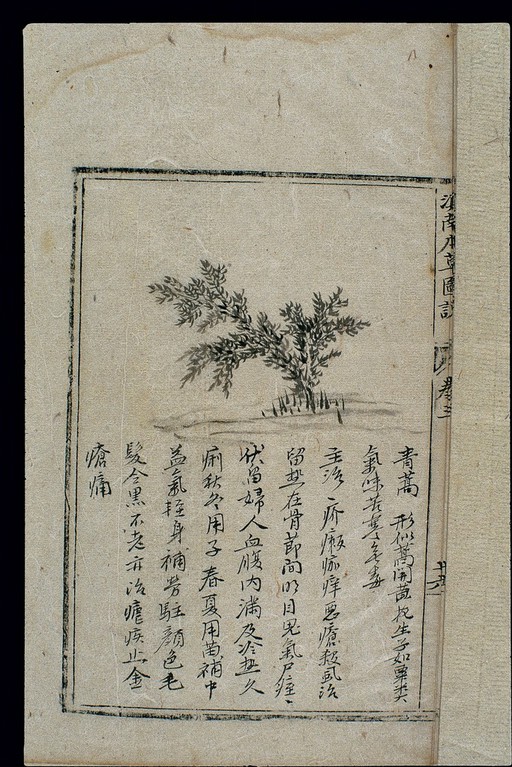 滇南本草圖說 卷三
青蒿 形似蒿開黃花生子如粟类
氣味苦寒無毒
主治疥瘙痂痒惡瘡殺虱治
留热在骨節間明目鬼氣尸疰
伏留婦人血腹内滿及冷热久
痢秋冬用子春夏用苗補中
益氣輕身補勞駐顏色毛
髮令黑不老亦治瘧疾止金
瘡痛